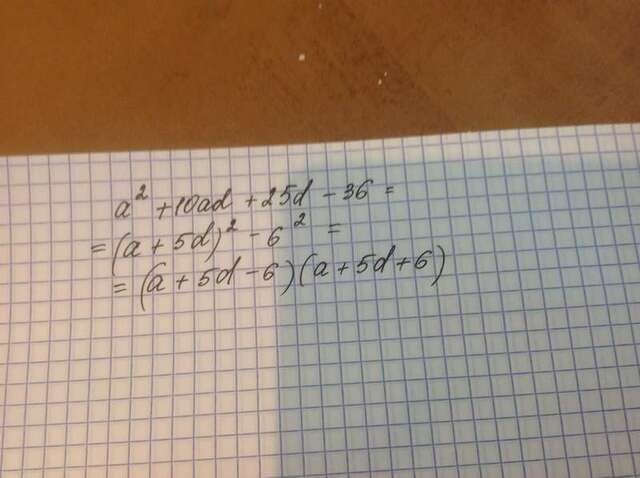 a² + 10ad + 25d - 36 =
= (a + 5d)² - 6² =
= (a + 5d - 6)(a + 5d + 6)